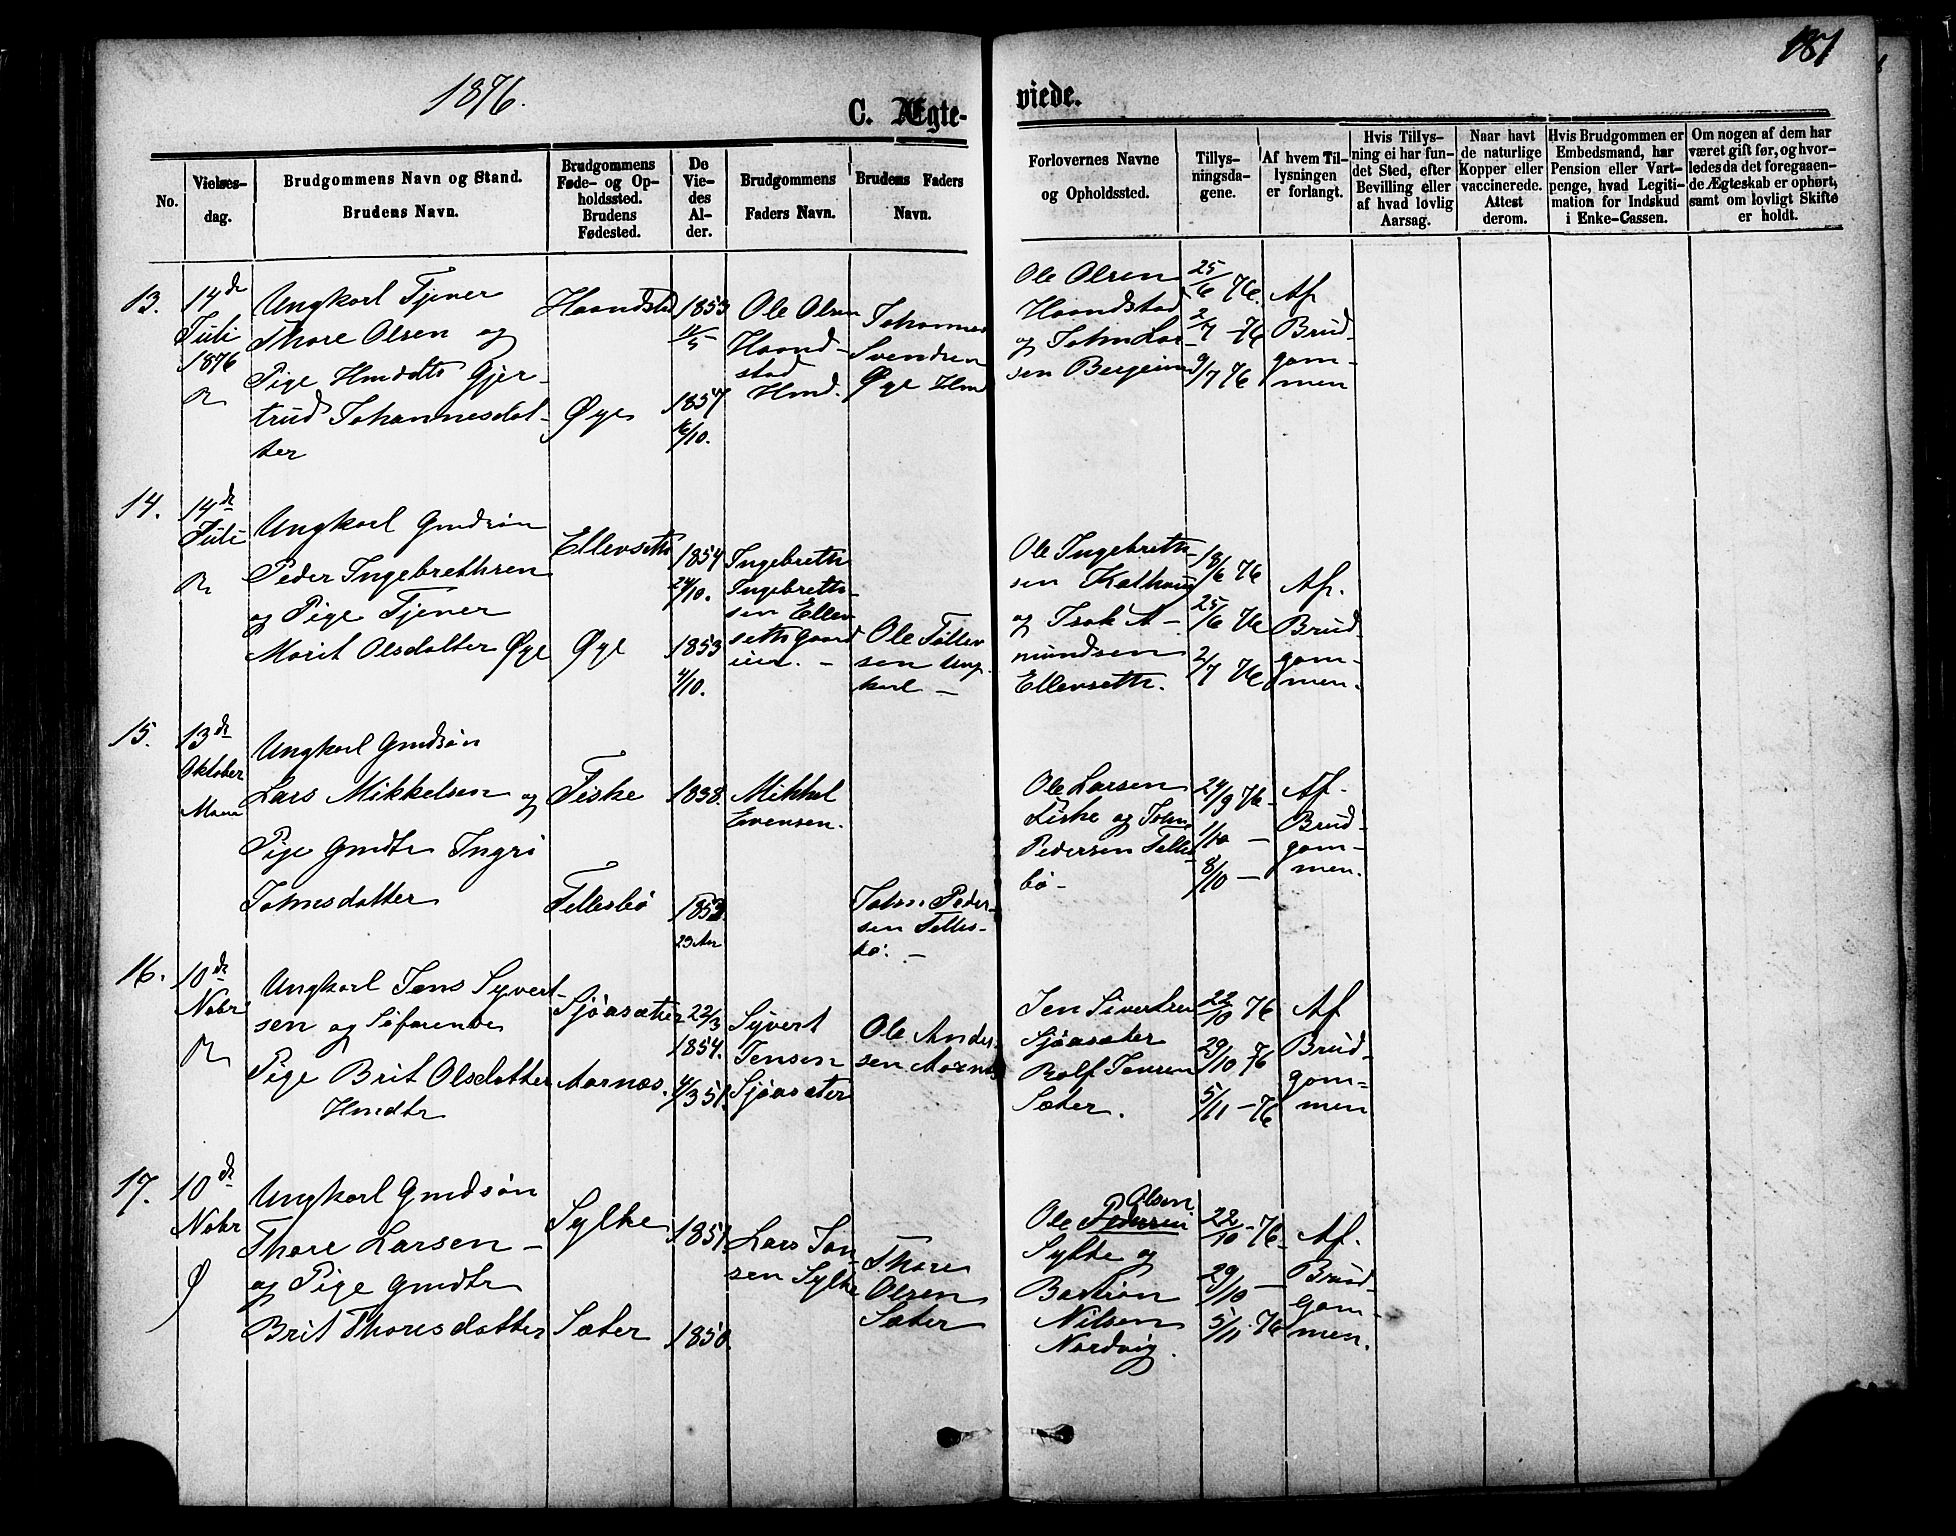 1876.
181
C. Ægte-
viede.
No.
Vielses-
dag.
Brudgommens Navn og Stand.
Brudens Navn.
Brudgommens
Føde- og Op-
holdssted.
Brudens
Fødested.
De
Vie-
des
Al-
der.
Brudgommens
Faders Navn.
Brudens Faders
Navn.
Forlovernes Navne
og Opholdssted.
Tillys-
ningsda-
gene.
Af hvem Til-
lysningen
er forlangt.
Hvis Tillys-
ning ei har fun-
det Sted, efter
Bevilling eller
af hvad lovlig
Aarsag.
Naar havt
de naturlige
Kopper eller
vaccinerede.
Attest
derom.
Hvis Brudgommen er
Embedsmand, har
Pension eller Vart-
penge, hvad Legiti-
mation for Indskud
i Enke-Cassen.
Om nogen af dem har
været gift før, og hvor-
ledes da det foregaaen-
de Ægteskab er ophørt,
samt om lovligt Skifte
er holdt.
13.
14de
Juli
1876
Ungkarl Tjener
Thore Olsen og
Pige Hmddtr Gjer-
trud Johannesdat-
ter
Haandstad
Øye
1853
1857
16/10.
Ole Olsen
Haand-
stad
Hmd.
Johannes
Svendsen
Øye Hmd
Ole Olsen
Haandstad
og John Lar-
sen Bergeim
25/6 76.
2/7 - 76
9/7 76
Af
Brud-
gom-
men
14.
14de
Juli
Ungkarl Gmdsøn
Peder Ingebrethsen
og Pige Tjener
Marit Olsdatter Øye
Ellevseth
Øye
1854
24/10.
1853
4/10.
Ingebreth
Ingebreth-
sen Ellev
seth Gaard
Ole Tollev
sen Ung-
karl -
Ole Ingebreth-
sen Kalhaug
og Isak A-
mundsen
Ellevseth.
18/6 76
25/6 76
2/7 76
Af.
Brud-
gom-
men.
15.
13de
Oktober
Ungkarl Gmdsøn
Lars Mikkelsen og
Pige Gmdtr Ingri
Johnsdatter
Fiske
Tellesbø
1838.
1853
23 Aar
Mikkel
Evensen.
John Peder-
sen Telles-
bø. -
Ole Larsen
Fiske og John
Pedersen Telles
bø -
24/9 76-
1/10 -
8/10 -
Af-
Brud-
gom-
men.
16.
10de
Nobr
Ungkarl Jens Syvert-
sen og Søfarende
Pige Brit Olsdatter
Hmdtr
Sjøasæter
Aarnæs.
22/3
1854.
4/3 51.
Syvert
Jensen
Sjøasæter
Ole Ander-
sen Aarnæs
Jen Sivertsen
Sjøasæter
Rolf Jonsen
Sæter.
22/10 76
29/10 76
5/11 - 76
Af
Brud-
gom-
men
17.
10de
Nobr
Ø
Ungkarl Gmdsøn
Thore Larsen -
og Pige Gmdtr
Brit Thoresdatter
Sylte
Sæter
1851.
1850.
Lars Jon-
sen Sylte
Thore
Olsen
Sæter
Olsen
Ole Pedersen
Sylte og
Bastion
Nilsen
Nordvig.
22/10 - 76-
29/10 -
5/11 - 76
Af.
Brud-
gom-
men.